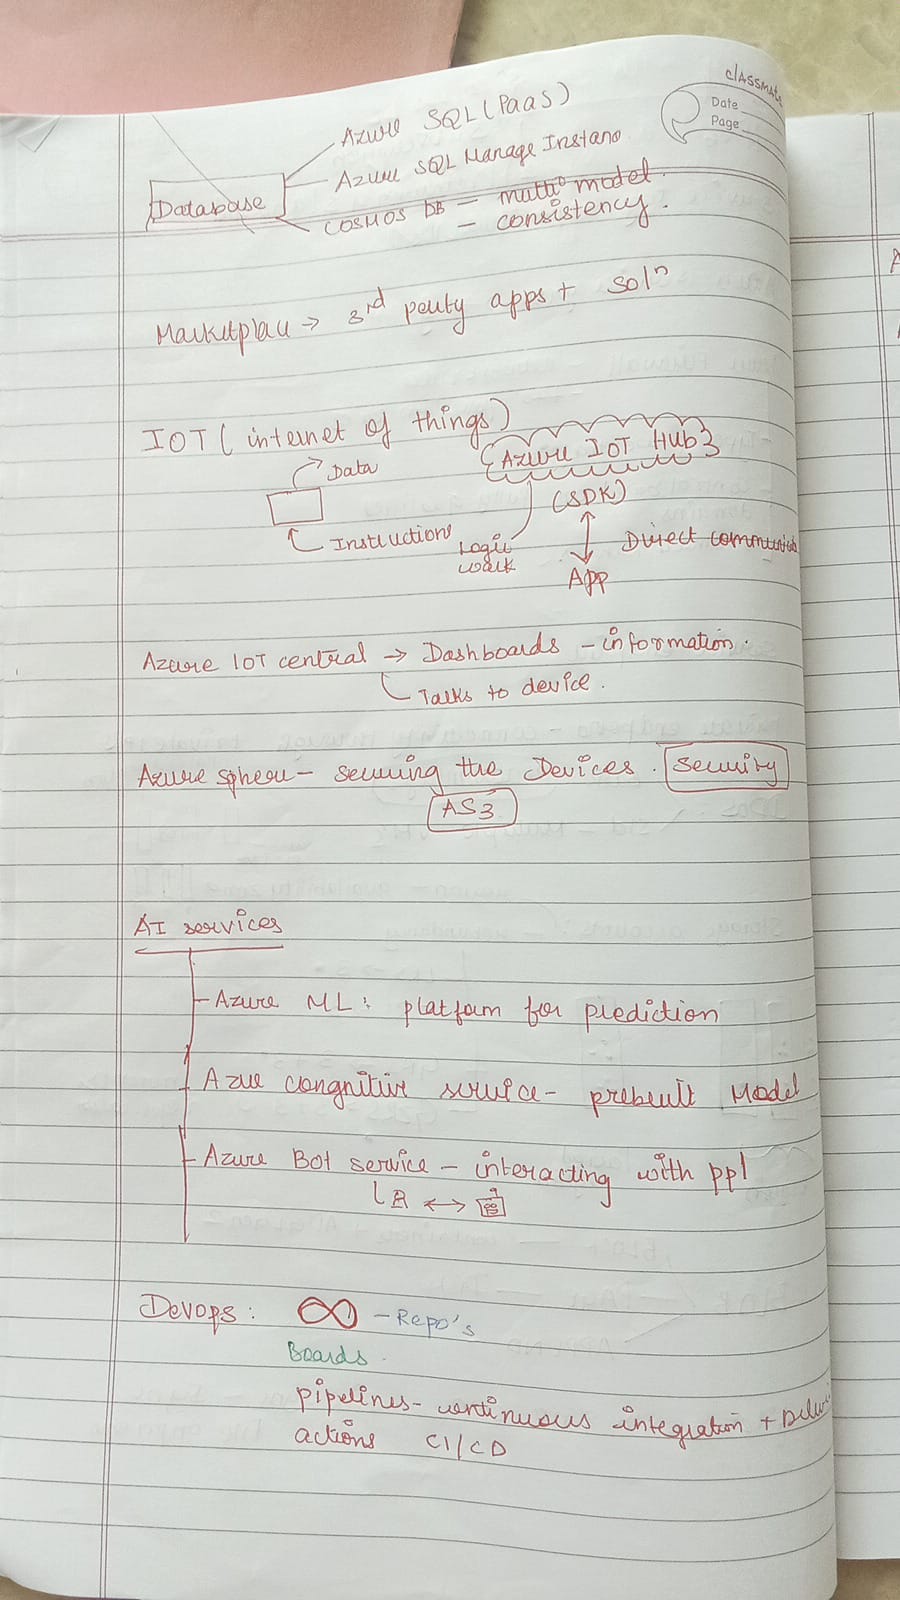 classmate
Date
Page
Azure SQL (PaaS)
Azure SQL Manage Instanc
Database
COSMOS DB = multi model.
- consistency.
Marketplace → 3rd party apps + Solⁿ
IOT (internet of things)
Data
Instructions
Azure IOT Hub
(SDK)
Logic
work
Direct communicat
App
Azure IOT central → Dashboards - information.
Talks to device.
Azure sphere - securing the Devices. Security
AS3
AI services
- Azure ML: platform for prediction
- Azue congnitive service - prebeult Model
- Azure Bot service - interacting with ppl
Devops: ∞ - Repo's
Boards
pipelines - continuous integration + Deliv
actions CI/CD